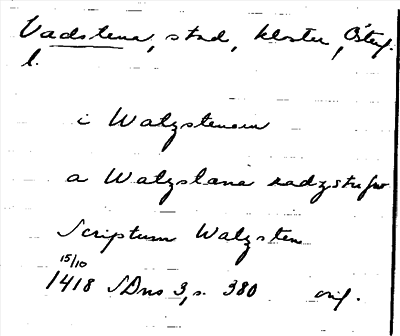 Vadstena, stad, kloster, Östg.
l.
i Watzstenom
a Watzstana radzstufw
Scriptum Watzsten
15/10
1418 SDns 3, s. 380 orig.